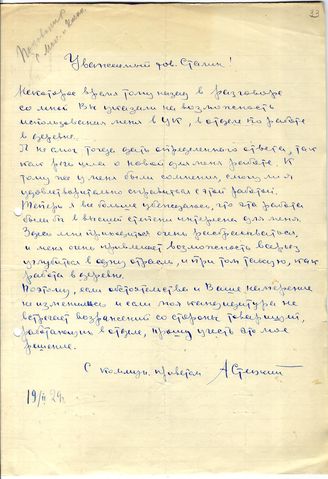 33
Поговорить
с
Уважаемый тов. Сталин!
Некоторое время тому назад в разговоре
со мной Вы указали на возможность
использования меня в ЦК, в отделе по работе
в деревне.
Я не смог тогда дать определенного ответа, так
как речь шла о новой для меня работе. К
тому же у меня были сомнения, смогу ли я
удовлетворительно справиться с этой работой.
Теперь я все больше убеждаюсь, что эта работа
была бы в высшей степени интересна для меня.
Здесь мне приходится очень разбрасываться,
и меня очень привлекает возможность всерьез
углубиться в одну отрасль, и при том такую, как
работа в деревне.
Поэтому, если обстоятельства и Ваше намерение
не изменились и если моя кандидатура не
встречает возражений со стороны товарищей,
работающих в отделе, прошу учесть это мое
решение.
С коммун. приветом АСтецкий
19/II 29г.